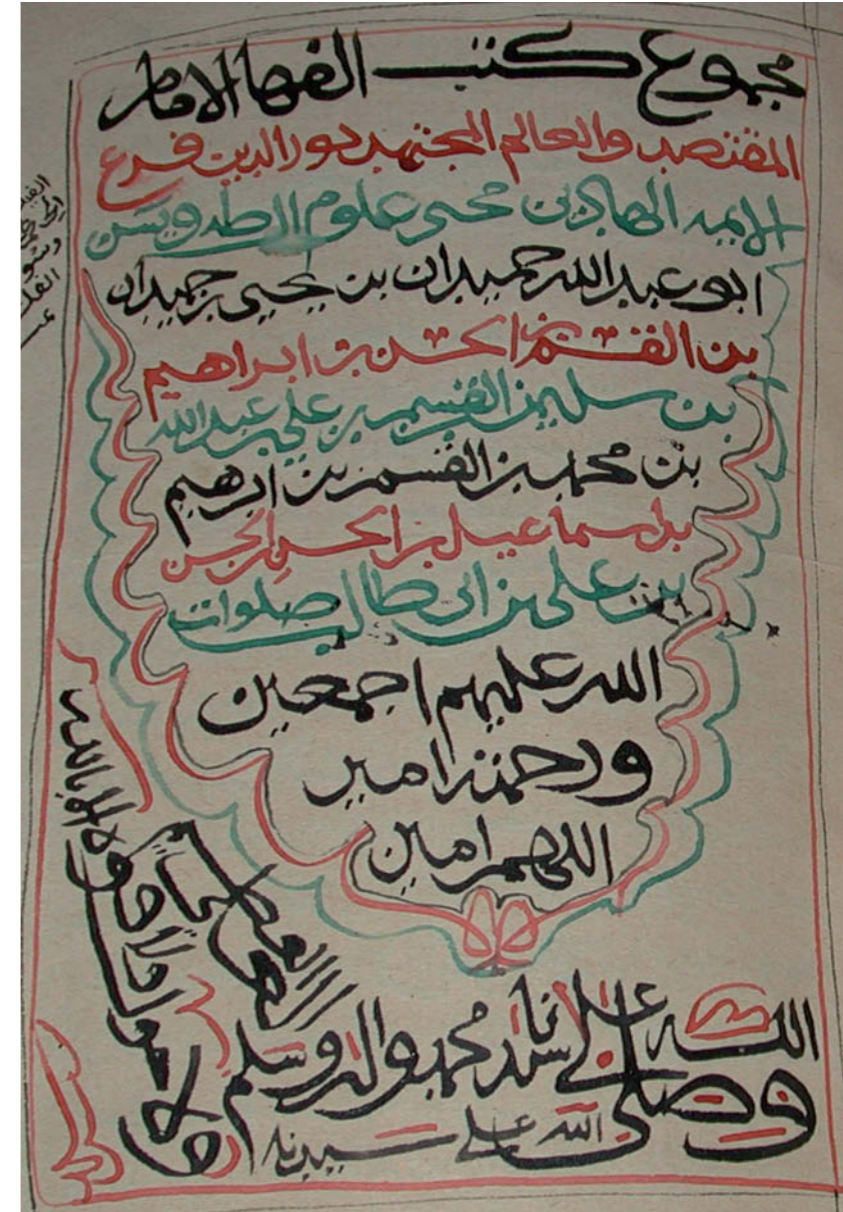 مجموع كتب الفها الامام
المقتصد والعالم المجتهد نور الدين فرع
الايمه الهادين محيى علوم ال طه ويسن
ابو عبدالله حميدان بن يحيى بن حميدان
بن القسم بن الحسن بن ابراهيم
بن سليمن بن القسم بن علي بن عبدالله
بن محمد بن القسم بن ابرهيم
بن اسماعيل بن الحسن بن الحسن
بن على بن ابى طالب صلوات
الله عليهم اجمعين
ورحمته امين
اللهم امين
وصلى الله على سيدنا محمد واله وسلم
ولا حول ولا قوة الا بالله
العلي العظيم
صلى الله على سيدنا